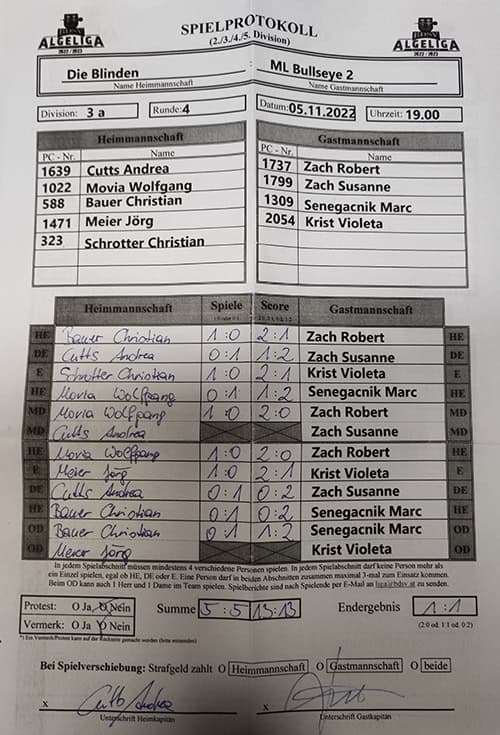 ALGELIGA
2022 / 2023
SPIELPROTOKOLL
(2./3./4./5. Division)
ALGELIGA
2022 / 2023
Die Blinden : ML Bullseye 2
Name Heimmannschaft Name Gastmannschaft
Division: 3 a Runde: 4 Datum: 05.11.2022 Uhrzeit: 19.00
Heimmannschaft Gastmannschaft
PC - Nr. Name PC - Nr. Name
1639 Cutts Andrea 1737 Zach Robert
1022 Movia Wolfgang 1799 Zach Susanne
588 Bauer Christian 1309 Senegacnik Marc
1471 Meier Jörg 2054 Krist Violeta
323 Schrotter Christian
Heimmannschaft Spiele Score Gastmannschaft
HE Bauer Christian 1:0 2:1 Zach Robert HE
DE Cutts Andrea 0:1 1:2 Zach Susanne DE
E Schrotter Christian 1:0 2:1 Krist Violeta E
HE Movia Wolfgang 0:1 1:2 Senegacnik Marc HE
MD Movia Wolfgang 1:0 2:0 Zach Robert MD
MD Cutts Andrea Zach Susanne MD
HE Movia Wolfgang 1:0 2:0 Zach Robert HE
E Meier Jörg 1:0 2:1 Krist Violeta E
DE Cutts Andrea 0:1 0:2 Zach Susanne DE
HE Bauer Christian 0:1 0:2 Senegacnik Marc HE
OD Bauer Christian 0:1 1:2 Senegacnik Marc OD
OD Meier Jörg Krist Violeta OD
In jedem Spielabschnitt müssen mindestens 4 verschiedene Personen spielen. In jedem Spielabschnitt darf keine Person mehr als
ein Einzel spielen, egal ob HE, DE oder E. Eine Person darf in beiden Abschnitten zusammen maximal 3-mal zum Einsatz kommen.
Beim OD kann auch 1 Herr und 1 Dame im Team spielen. Spielberichte sind nach Spielende per E-Mail an liga@bdsv.at zu senden.
Protest: O Ja O Nein Summe 5:5 13:13 Endergebnis 1:1
Vermerk: O Ja O Nein (2:0 od. 1:1 od. 0:2)
*) Ein Vermerk/Protest kann auf der Rückseite gemacht werden (bitte ankreuzen)
Bei Spielverschiebung: Strafgeld zahlt O Heimmannschaft O Gastmannschaft O beide
x Cutts Andrea x
Unterschrift Heimkapitän Unterschrift Gastkapitän